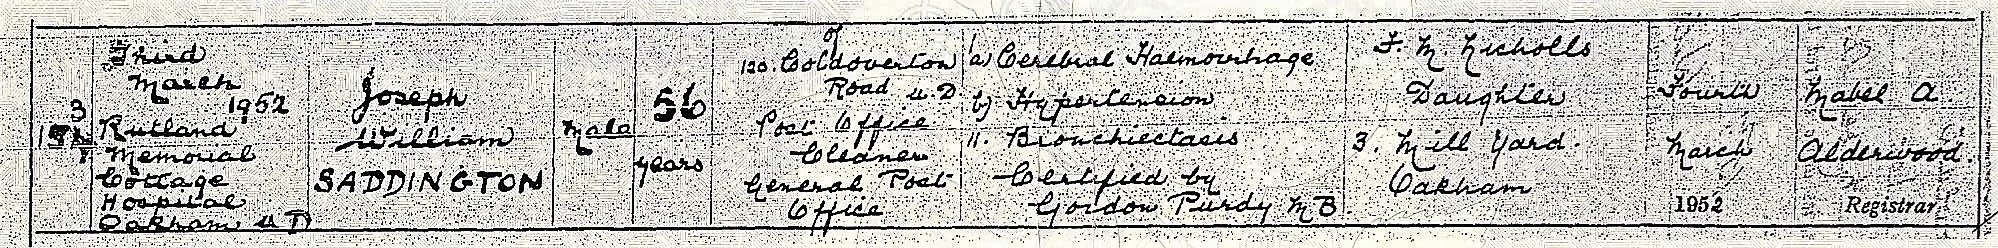 Third
March
1952
Rutland
Memorial
Cottage
Hospital
Oakham U D
Joseph
William
SADDINGTON
Male
56
years
of
120. Coldoverton
Road U.D
Post Office
Cleaner
General Post
Office
1a) Cerebral Haemorrhage
b) Hypertension
11. Bronchiectasis
Certified by
Gordon Purdy MB.
F. M. Nicholls
Daughter
3. Mill Yard.
Oakham
Fourth
March
1952
Mabel A
Alderwood.
Registrar